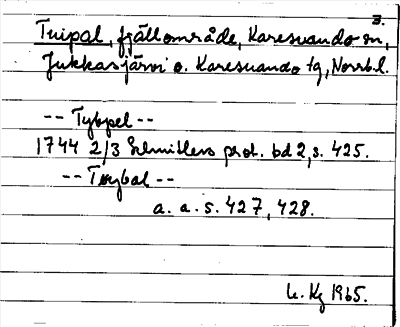 3.
Tuipal, fjällområde, Karesuando sn,
Jukkasjärvi o. Karesuando tg, Norrb.l.
-- Tybpel --
1744 2/3 Schnitlers prot. bd 2, s. 425.
-- Tøybal --
a. a. s. 427, 428.
Kg 1965.